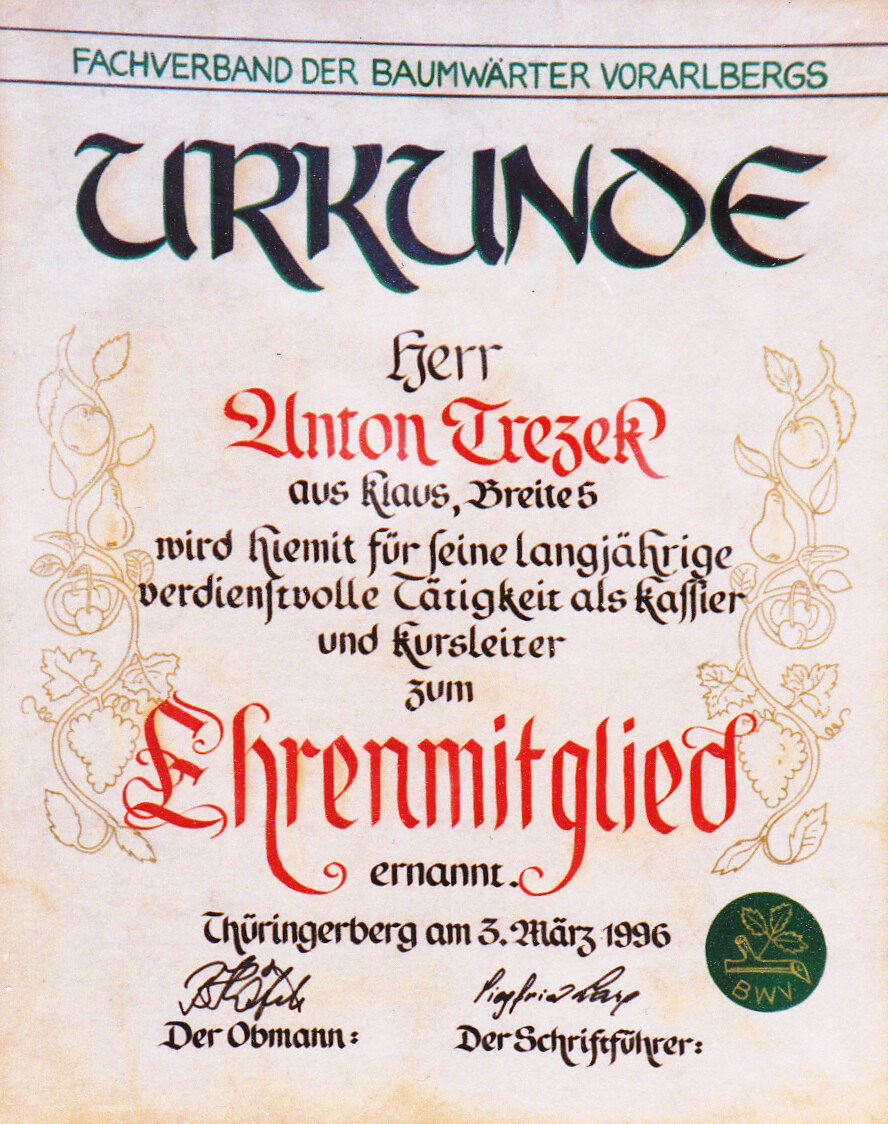 FACHVERBAND DER BAUMWÄRTER VORARLBERGS
URKUNDE
Herr
Anton Trezek
aus Klaus, Breite 5
wird hiemit für seine langjährige
verdienstvolle Tätigkeit als Kassier
und Kursleiter
zum
Ehrenmitglied
ernannt.
Thüringerberg am 3. März 1996
BWV
Siegfried
Der Obmann:
Der Schriftführer: